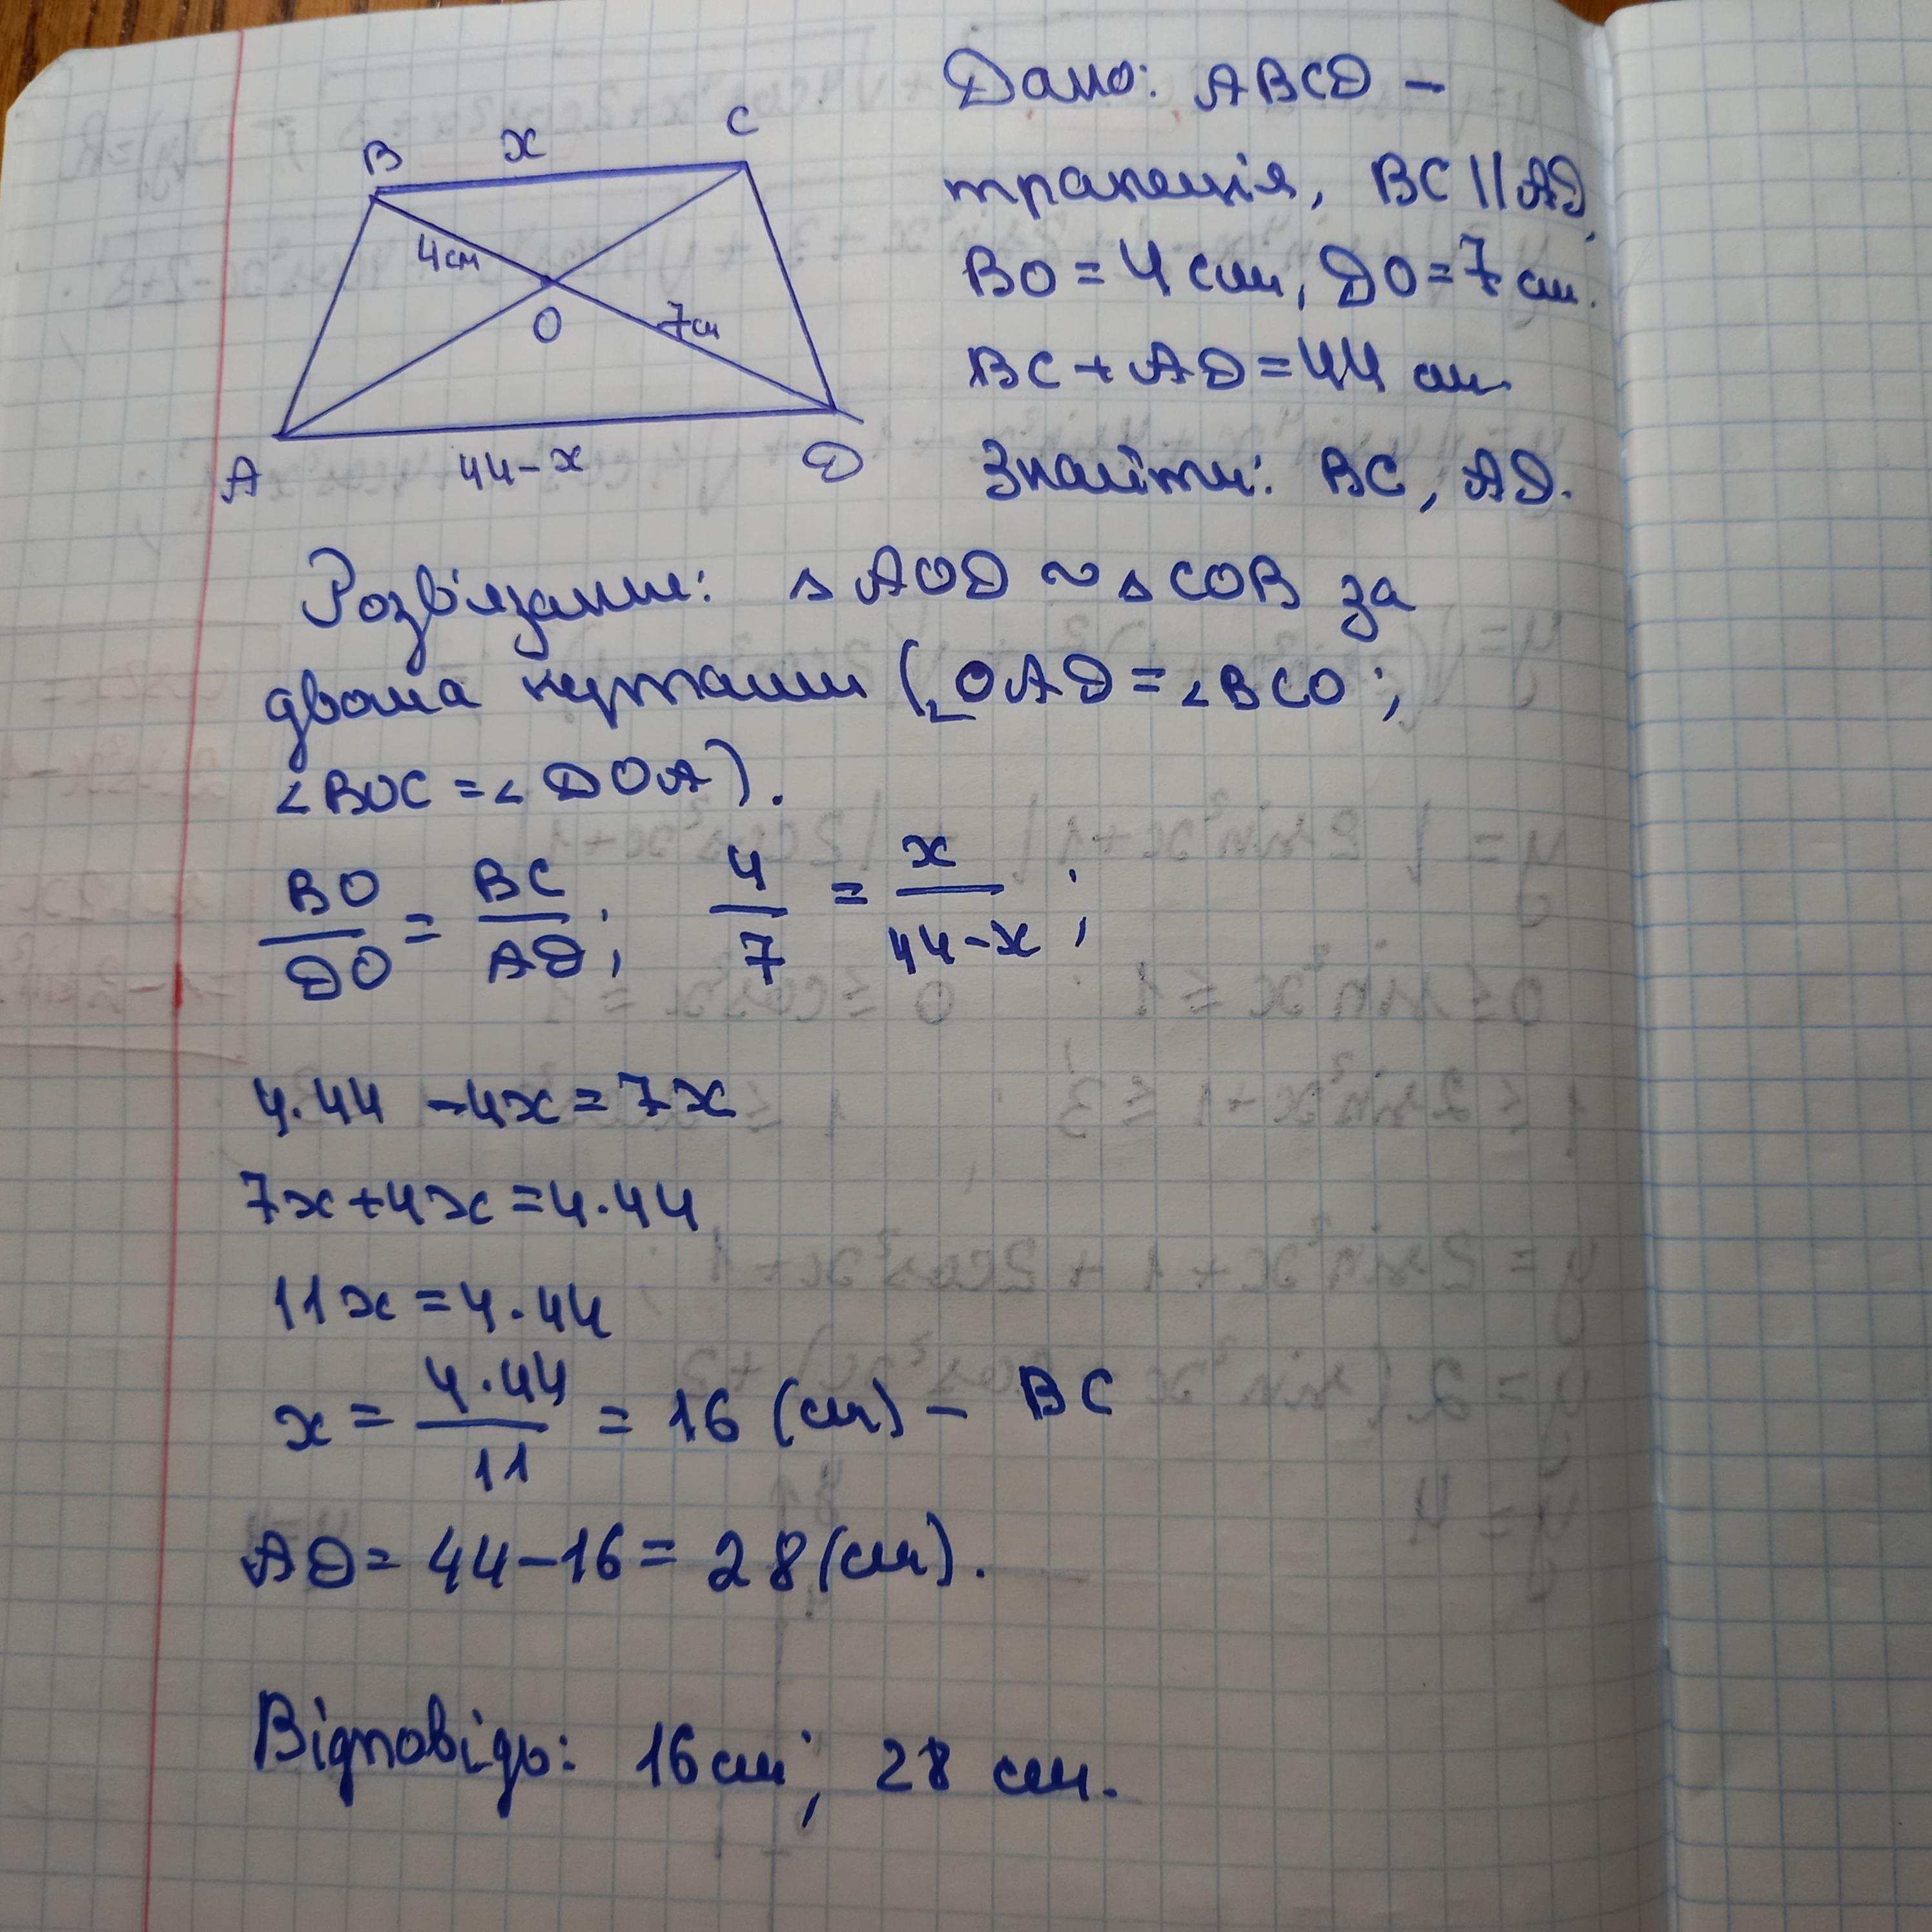 B x C
4см
O 7см
A 44-x D
Дано: ABCD –
трапеція, BC || AD,
BO = 4 см, DO = 7 см.
BC + AD = 44 см.
Знайти: BC, AD.
Розв'язання: △ AOD ~ △ COB за
двома кутами (∠OAD = ∠BCO;
∠BOC = ∠DOA).
BO/DO = BC/AD; 4/7 = x/44-x;
4·44 - 4x = 7x
7x + 4x = 4·44
11x = 4·44
x = 4·44/11 = 16 (см) – BC
AD = 44 - 16 = 28 (см).
Відповідь: 16 см; 28 см.